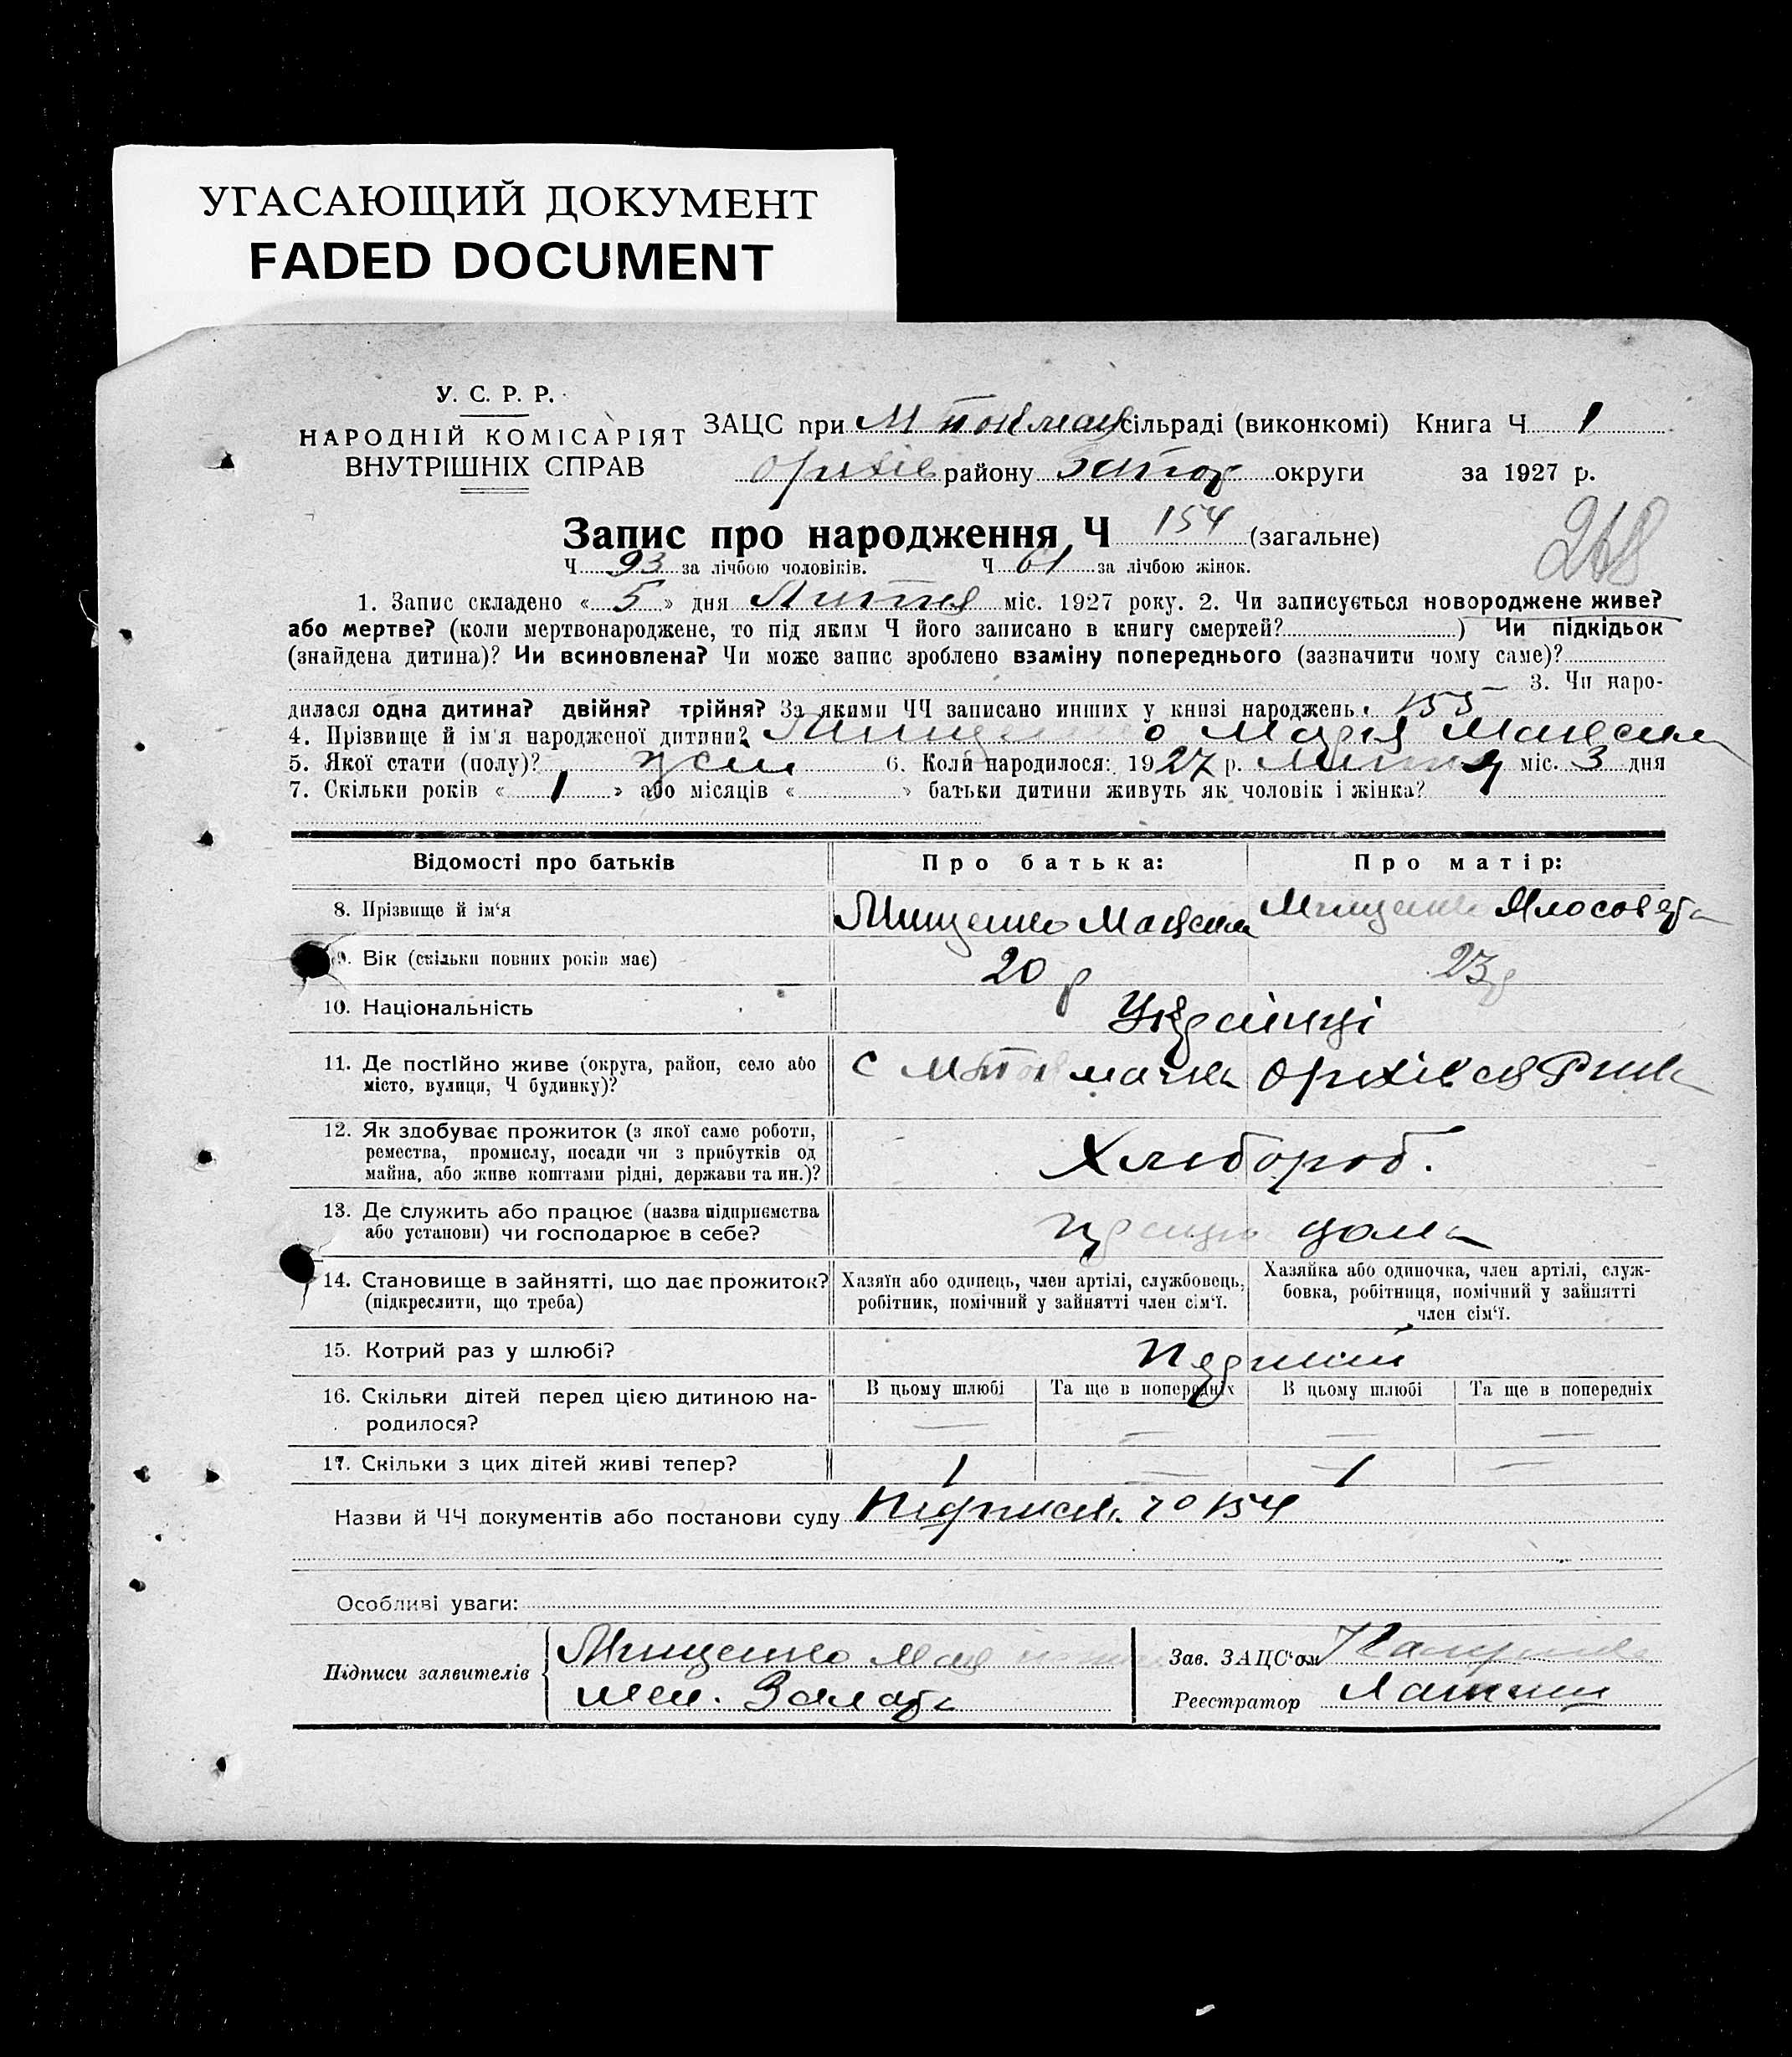 УГАСАЮЩИЙ ДОКУМЕНТ
FADED DOCUMENT
У. С. Р. Р.
НАРОДНІЙ КОМІСАРІЯТ
ВНУТРІШНІХ СПРАВ
ЗАЦС при М Токмац сільраді (виконкомі) Книга Ч 1
Оріхів району Запор округи за 1927 р.
Запис про народження Ч 154 (загальне)
268
Ч 93 за лічбою чоловіків. Ч 61 за лічбою жінок.
1. Запис складено « 5 » дня Липня міс. 1927 року. 2. Чи записується новороджене живе?
або мертве? (коли мертвонароджене, то під яким Ч його записано в книгу смертей?) Чи підкідьок
(знайдена дитина)? Чи всиновлена? Чи може запис зроблено взаміну попереднього (зазначити чому саме)?
3. Чи наро-
дилася одна дитина? двійня? трійня? За якими ЧЧ записано инших у книзі народжень 155
4. Прізвище й ім'я народженої дитини? Мищенко Марія Максим
5. Якої стати (полу)? жен 6. Коли народилося: 1927 р. Липня міс. 3 дня
7. Скільки років « 1 » або місяців « » батьки дитини живуть як чоловік і жінка?
Відомості про батьків Про батька: Про матір:
8. Прізвище й ім'я Мищенко Максим Мищенко Ялосовета
9. Вік (скільки повних років має) 20 р 23 р
10. Національність Українці
11. Де постійно живе (округа, район, село або
місто, вулиця, Ч будинку)? с М Токмачка Оріхівськ Рника
12. Як здобуває прожиток (з якої саме роботи,
ремества, промислу, посади чи з прибутків од
майна, або живе коштами рідні, держави та ин.)? Хлібороб.
13. Де служить або працює (назва підприємства
або установи) чи господарює в себе? працює дома
14. Становище в зайнятті, що дає прожиток?
(підкреслити, що треба)
Хазяїн або одинець, член артілі, службовець,
робітник, помічний у зайнятті член сім'ї.
Хазяйка або одиночка, член артілі, служ-
бовка, робітниця, помічний у зайнятті
член сім'ї.
15. Котрий раз у шлюбі?
16. Скільки дітей перед цією дитиною на-
родилося?
В цьому шлюбі Та ще в попередніх В цьому шлюбі Та ще в попередніх
— — — —
17. Скільки з цих дітей живі тепер? 1 — 1 —
Назви й ЧЧ документів або постанови суду 154
Особливі уваги:
Підписи заявителів Мищенко
Зав. ЗАЦС'ом
Реєстратор